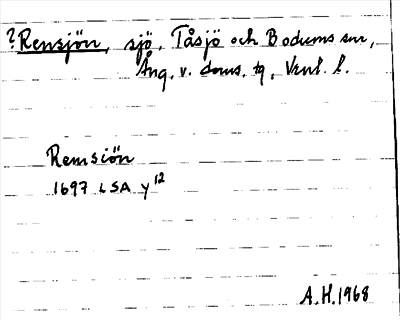 ?Rensjön, sjö, Tåsjö och Bodums snr,
Ång. v. doms. tg, Vnl. l.
Remsiön
1697 LSA Y12
A.H.1968